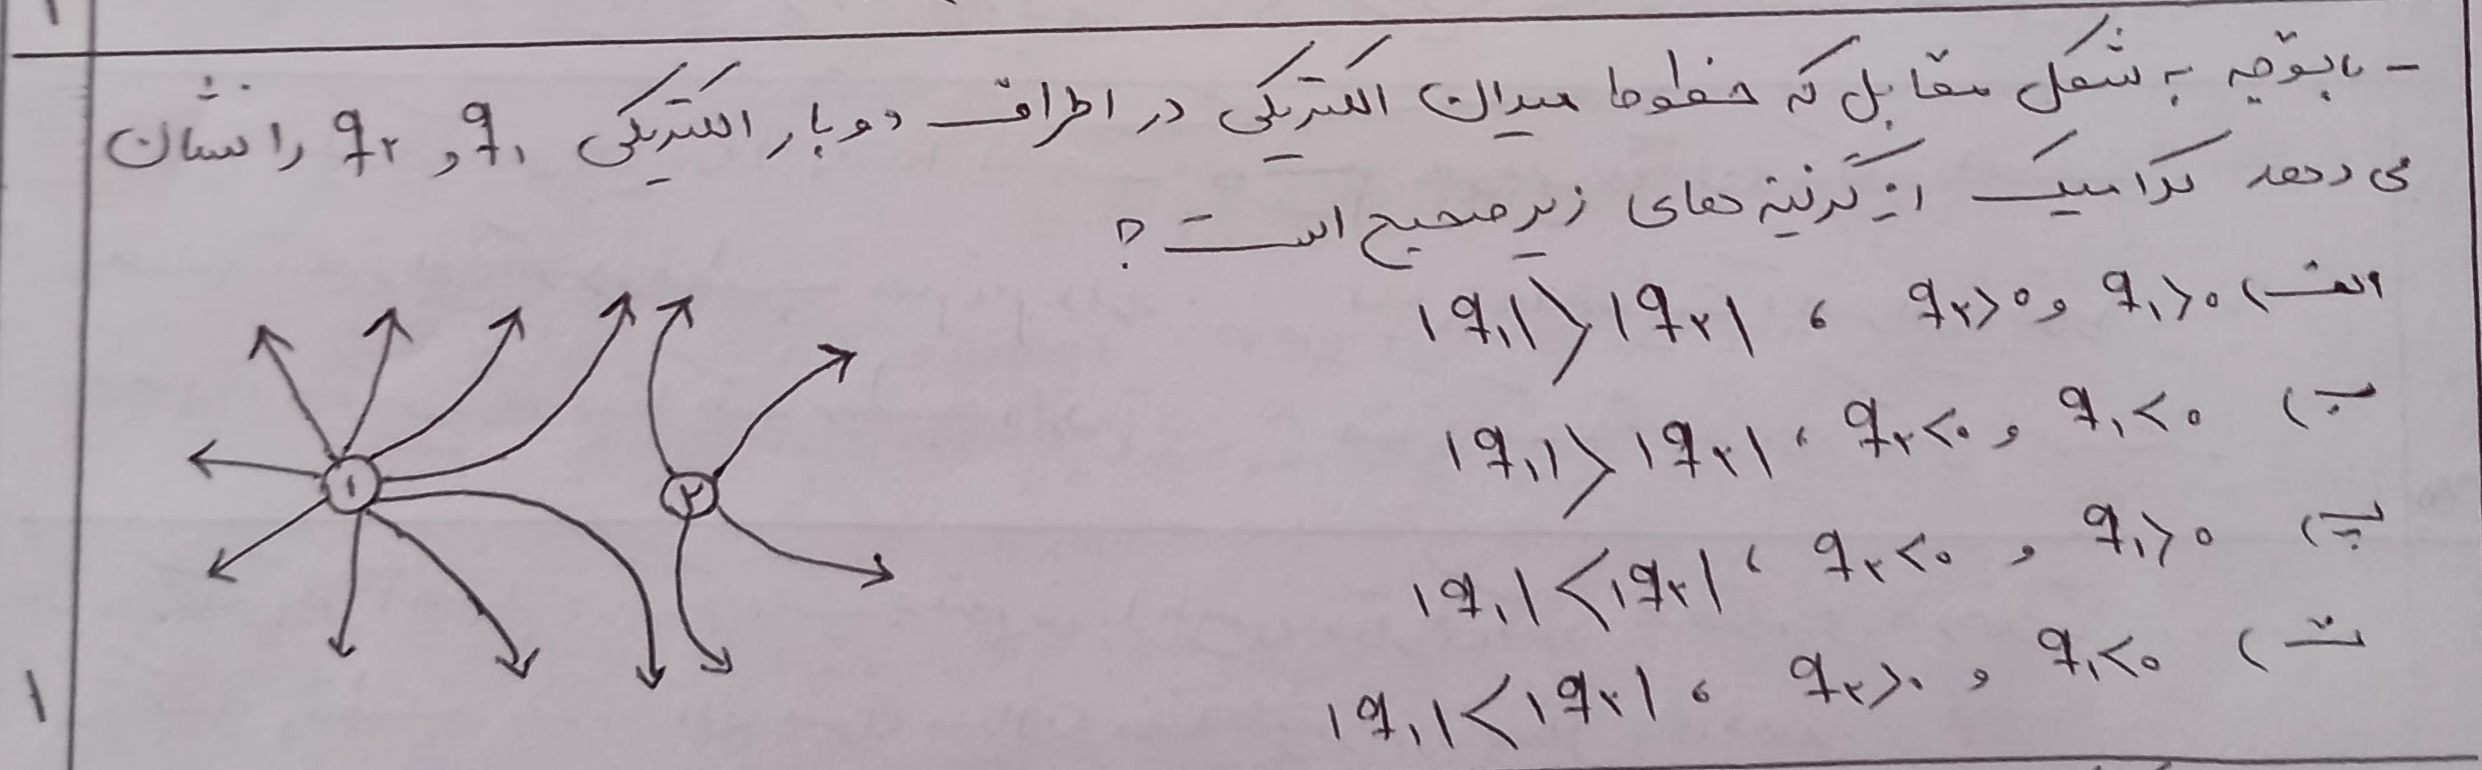 ۱
- باتوجه به شکل مقابل که خطوط میدان الکتریکی در اطراف دو بار الکتریکی q۱ و q۲ را نشان
می دهد کدامیک از گزینه های زیر صحیح است؟
الف) q۱>۰ و q۲>۰ ، |q۱|>|q۲|
ب) q۱<۰ و q۲<۰ ، |q۱|>|q۲|
پ) q۱>۰ و q۲<۰ ، |q۱|<|q۲|
ت) q۱<۰ و q۲>۰ ، |q۱|<|q۲|
۱
۲
۱